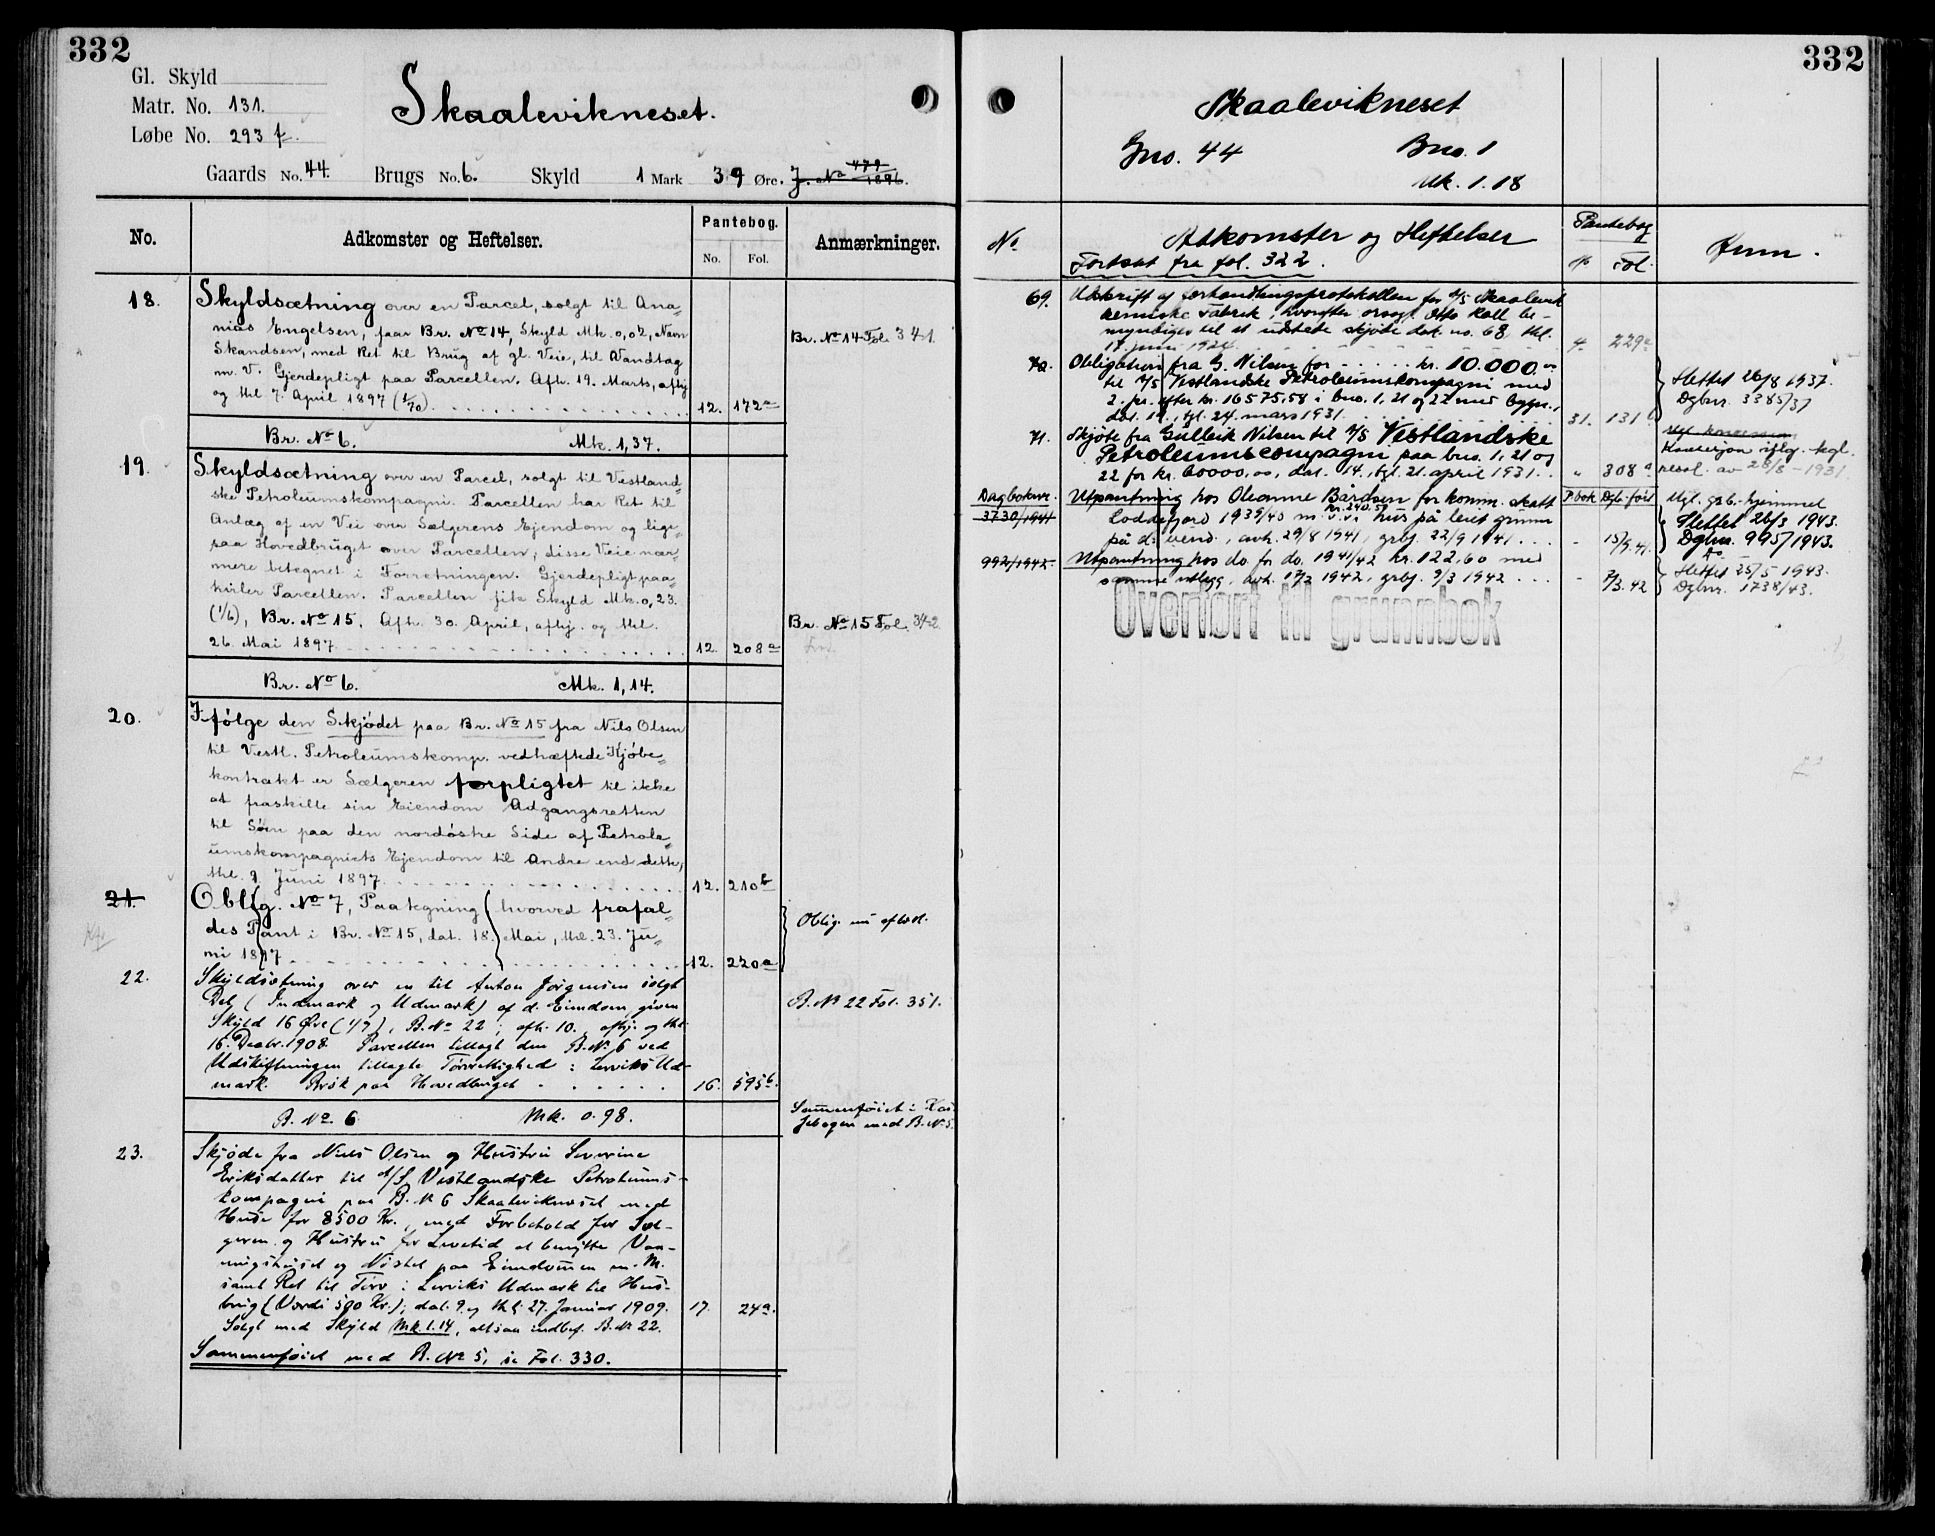 332
Gl. Skyld
Matr. No. 131.
Løbe No. 293 f.
Skaalevikneset.
Gaards No. 44. Brugs No. 6. Skyld 1 Mark 39 Øre. J. No 479/1896.
No. Adkomster og Heftelser. Pantebog. No. Fol. Anmærkninger.
18. Skyldsætning over en Parcel, solgt til Ana„
nias Engelsen, faar Br. No 14, Skyld Mk. 0,02, Navn
Skandsen, med Ret til Brug af gl. Veie, til Vandtag
m. V. Gjerdepligt paa Parcellen. Afh. 19. Marts, afhj
og thl 7. April 1897 (1/70). 12. 172a
Br. No 14 Fol. 341.
Br. No 6. Mk. 1,37.
19. Skyldsætning over en Parcel, solgt til Vestland„
ske Petroleumskompagni. Parcellen har Ret til
Anlæg af en Vei over Sælgerens Ejendom og lige„
saa Hovedbruget over Parcellen, disse Veie nær„
mere betegnet i Forretningen. Gjerdepligt paa„
hviler Parcellen. Parcellen fik Skyld Mk. 0,23.
(1/6), Br. No 15. Afh. 30. April, afhj. og thl.
26. Mai 1897. 12. 208a
Br. No 15 Fol. 342.
Br. No 6. Mk. 1,14.
20. Ifølge den Skjødet paa Br. No 15 fra Nils Olsen
til Vestl. Petroleumskomp. vedhæftede Kjøbe„
kontrakt er Sælgeren forpligtet til ikke
at fraskille sin Eiendom Adgangsretten
til Søen paa den nordøstre Side af Petrole„
umskompagniets Ejendom til Andre end dette,
thl. 9 Juni 1897. 12. 210b
21. Oblig. No 7, Paategning hvorved frafal„
des Pant i Br. No 15, dat. 18. Mai, thl. 23. Ju„
ni 1897 12. 220a
Oblig. nu aflæst.
22. Skyldsætning over en til Anton Jørgensen solgt
Del (Indmark og Udmark) af d. Eiendom, given
Skyld 16 Øre (1/7), B. No 22; afh. 10., afhj. og thl.
16. Decbr. 1908. Parcellen tillagt den B. No 6 ved
Udskiftningen tillagte Torvrettighed i Lerviks Ud-
mark. Brøk paa Hovedbruget 16. 595b.
B. No 22 Fol. 351.
B. No. 6 Mk. 0.98.
Sammenføiet i
med B. No 5.
23. Skjøde fra Niels Olsen og Hustru Severine
Eriksdatter til A/S Vestlandske Petroleums-
kompagni paa B. No 6 Skaalevikneset med
Huse for 8500 Kr., med Forbehold for Sæl-
geren og Hustru for Levetid at benytte Vaa-
ningshuset og Nøstet paa Eiendommen m. M.
samt Ret til Torv i Lerviks Udmark til Hus-
brug (Værdi 500 Kr.); dat. 9. og thl. 27. Januar 1909. 17. 24a.
Solgt med Skyld Mk 1.14, altsaa indbef. B. No 22.
Sammenføiet med B. No 5, se Fol. 330.
332
Skaalevikneset
Gno. 44 Bno. 1
Mk. 1.18
No Adkomster og Heftelser Pantebog Fol. Anm.
Fortsat fra fol. 322.
69. Utskrift af forhandlingsprotokollen for A/S Skaalevik
kemiske Fabrik, hvorefter orsagf. Otto Kall be-
myndiges til at utstede skjøte dok. no. 68, thl.
17. juni 1924. 4. 229a
70. Obligation fra G. Nilsen for kr. 10.000.00
til A/S Vestlandske Petroleumskompagni med
2. pr. efter kr. 16575,58 i bno. 1, 21 og 22 med bygn.,
dat. 14., tgl. 24. mars 1931. 31. 131
Slettet 26/8 1937.
Dgbnr. 3385/37
71. Skjøte fra Gulleik Nilsen til A/S Vestlandske
Petroleumscompagni paa bno. 1, 21 og
22 for kr. 60000,00, dat. 14., tgl. 21. april 1931. „ 308a
Konsesjon iflg. kgl.
resol. av 28/8-1931
Dagboknr. Utpantning hos Oleanne Bårdsen for komm. skatt P.bok Dgb.ført Mgl. grb. hjemmel
3730/1941 Loddefjord 1939/40 m.v. kr. 240.59 i hus på leiet grunn
på d. eiend., avh. 29/8 1941, grbj. 22/9 1941. - 15/9.41.
Slettet 26/3 1943.
Dgbnr. 995/1943.
992/1942 Utpantning hos do. for do. 1941/42 kr. 122.60 med
samme utlegg, avh. 17/2 1942, grbj. 9/3 1942 - 7/3.42
Slettet 25/5 1943.
Dgbnr. 1738/43.
Overført til grunnbok